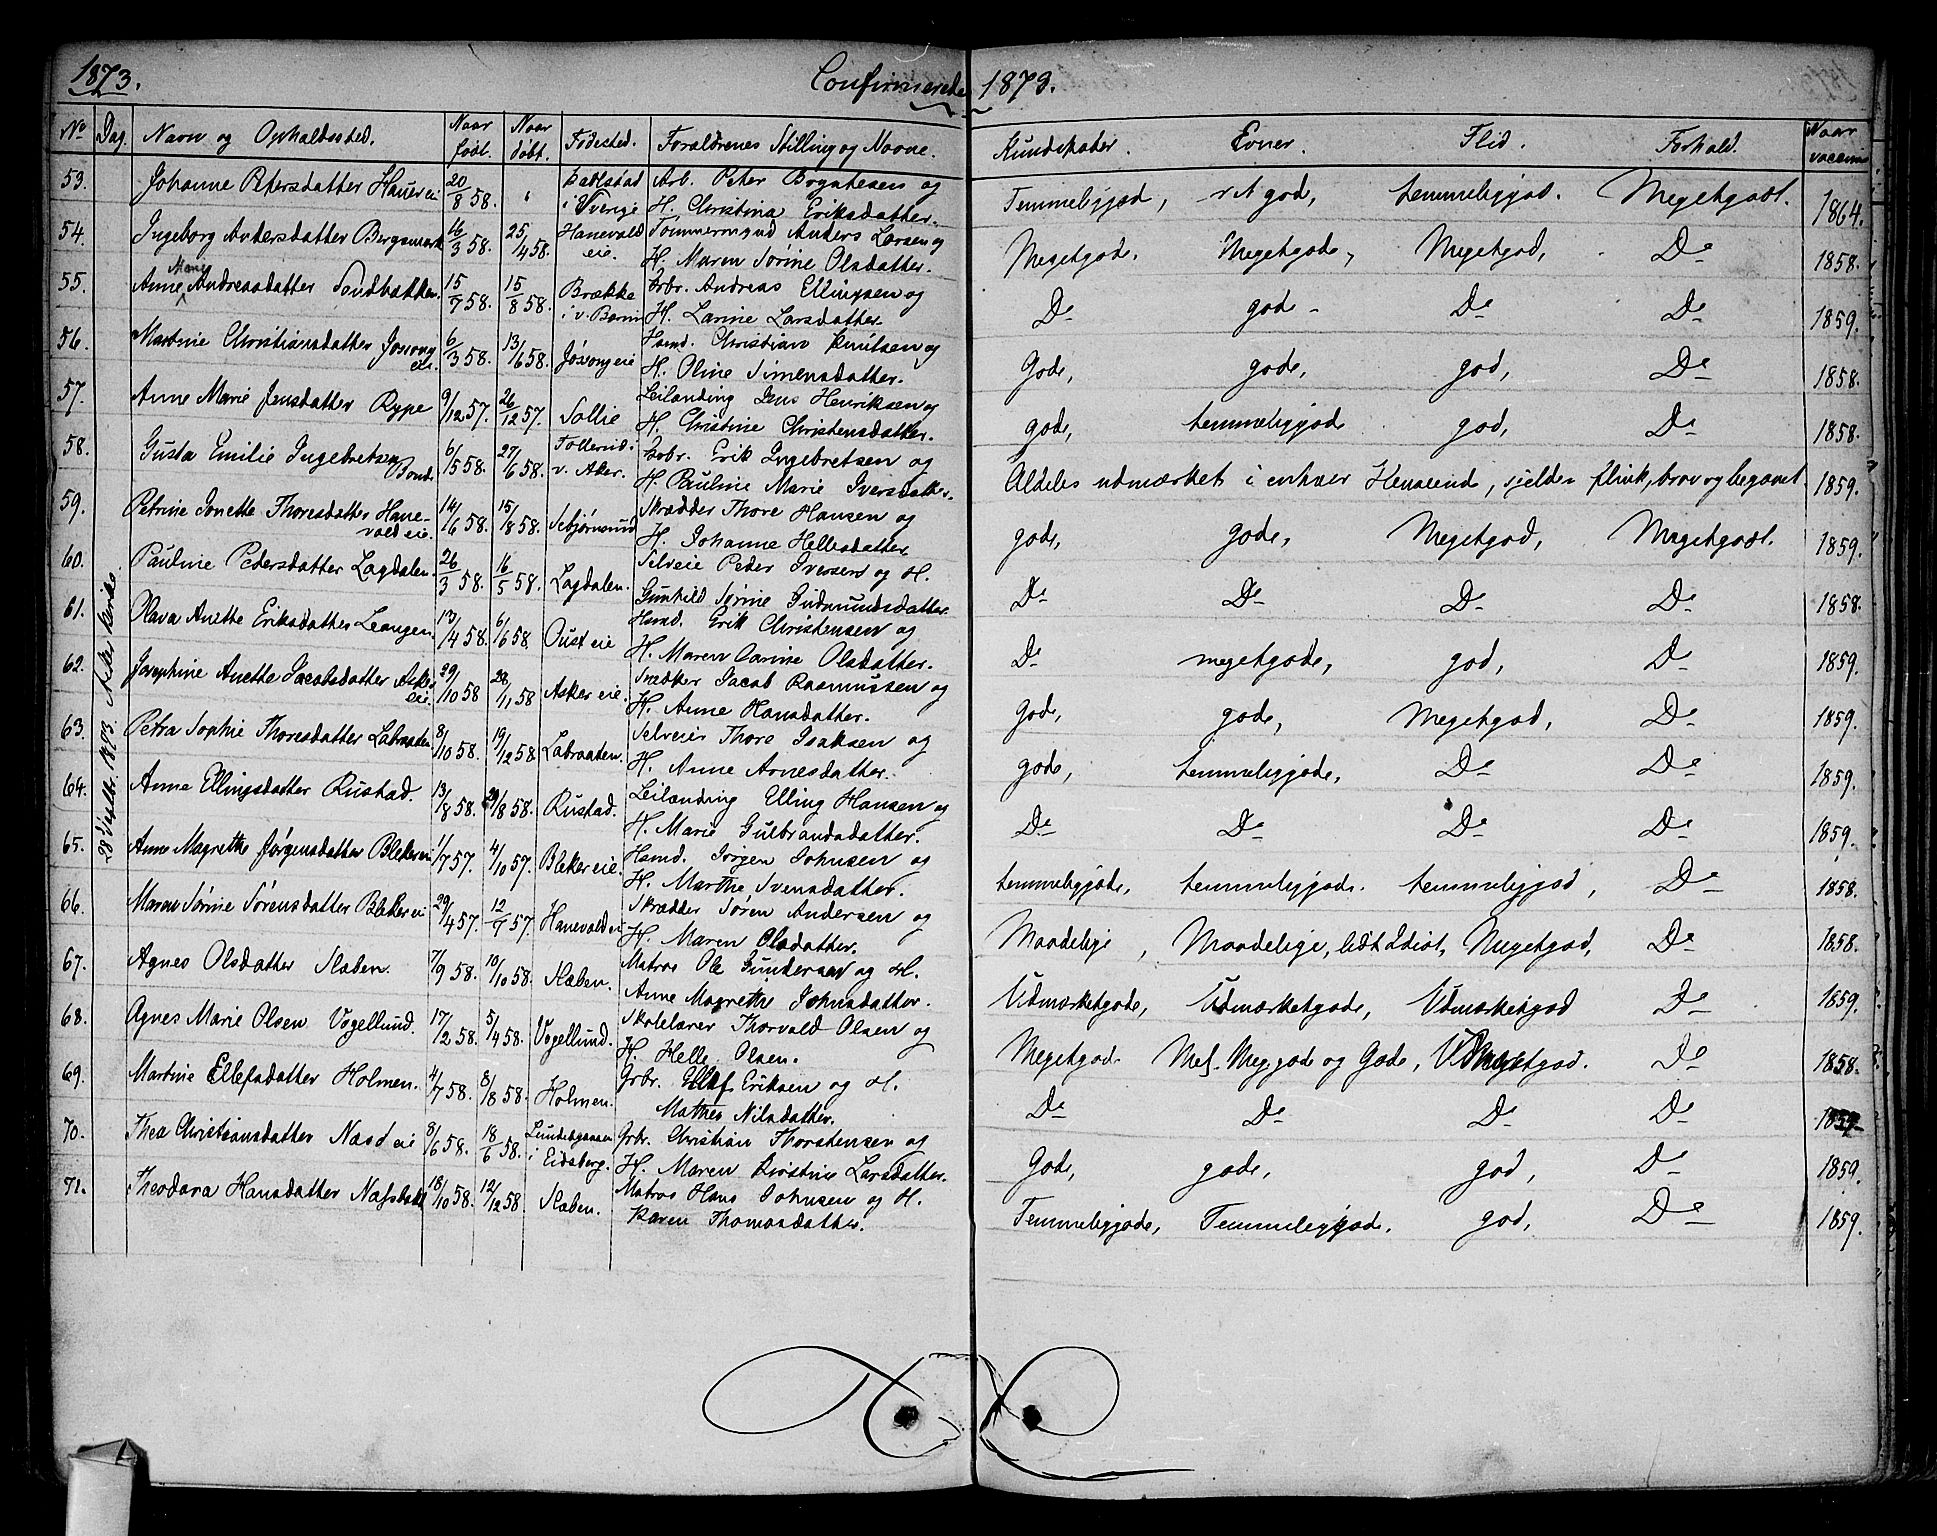 1873. Confirmerede 1873.
No Dag. Navn og Opholdssted. Naar født. Naar døbt. Fødested. Forældrenes Stilling og Navne. Kundskaber. Evner. Flid. Forhold. Naar vaccin
28 Septbr. 1873. Asker Kirke.
53. Johanne Petersdatter Haner ei 20/8 58. i Sverige Arb. Peter og Temmeliggod, ret god, temmeliggod. Megetgodt. 1864.
H. Christina Eriksdatter.
54. Ingeborg Andersdatter Bergsmark 16/3 58. 25/4 58. Hanevold eie. Tømmermand Anders Larsen og Megetgod. Megetgode, Megetgod, Do 1858.
H. Maren Sørine Olsdatter.
55. Anne Marie Andreasdatter Sandbakken 15/7 58. 15/8 58. Brække i v. Bærum Arbr. Andreas Ellingsen og Do god Do Do 1859.
H. Larine Larsdatter.
56. Martine Christiansdatter Jossong eie. 6/3 58. 13/6 58. Jøssong eie Husmd. Christian Knutsen og Gode, gode, god, Do 1858.
H. Oline Simensdatter.
57. Anne Marie Jensdatter Rype 9/12 57. 26/12 57. Sollie Leilænding Jens Henriksen og gode, temmeliggode god, Do 1858.
H. Christine Christensdatter.
58. Gusta Emilie Ingebretsen Bond 6/5 58. 27/6 58. v. Aker. Erik Ingebretsen og Aldeles udmærket i enhver Henseende, sjelden flink, brav og begavet 1859.
H. Pauline Marie Iversdatter.
59. Petrine Jonette Thoresdatter Hanevold eie. 14/6 58. 15/8 58. Sebjørnsrud Skrædder Thore Hansen og gode, gode, Megetgod, Megetgodt. 1859.
H. Johanne Hellesdatter.
60. Pauline Pedersdatter Lagdalen. 26/3 58. 16/5 58. Lagdalen. Selveie Peder Iversen og H. Do Do Do Do 1858.
Gunhild Sørine Gudmundsdatter.
61. Olava Anette Eriksdatter Leangen. 13/4 58. 6/6 58. Oust eie Husmd. Erik Christensen og Do megetgode, god, Do 1859.
H. Maren Carine Olsdatter.
62. Josephine Anette Jacobsdatter Asker eie. 29/10 58 28/11 58 Asker eie. Snedker Jacob Rasmussen og gode, gode, Megetgod, Do 1859.
H. Anne Hansdatter.
63. Petra Sophie Thoresdatter Labraaten 8/10 58. 19/12 58. Labraaten. Selveier Thore Isaksen og gode, temmeliggode, Do Do 1859.
H. Anne Arnesdatter.
64. Anne Ellingsdatter Rustad. 13/8 58. 29/8 58. Rustad. Leilænding Elling Hansen og Do Do Do Do 1859.
H. Marie Gulbrandsdatter.
65. Anne Magrethe Jørgensdatter Bleker ei 1/7 57. 4/10 57. Bleker eie. Husmd. Jørgen Johnsen og temmeliggode, temmeliggode. temmeliggod, Do 1858.
H. Marthe Svensdatter.
66. Maren Sørine Sørensdatter Bleker ei 29/4 57. 12/7 57. Hanevold ei Skrædder Søren Andersen og Maadelige, Maadelige, lidt Idiot, Megetgod, Do 1858.
H. Maren Olsdatter.
67. Agnes Olsdatter Slæben. 7/9 58. 10/10 58. Slæben. Matros Ole Gundersen og H. Udmærketgode, Udmærketgode, Udmærketgod Do 1859.
Anne Magrethe Johnsdatter.
68. Agnes Marie Olsen Vogellund. 17/2 58. 5/4 58. Vogellund. Skolelærer Thorvald Olsen og Megetgod. Mel. Meggode og Gode, Megetgod. Do 1858.
H. Helle Olsen.
69. Martine Ellefsdatter Holmen. 4/7 58. 8/8 58. Holmen. Grbr. Ellef Eriksen og H. Do Do Do Do 1859
Mathea Nilsdatter.
70. Thea Christiansdatter Næsd eie 8/6 58. 18/6 58. i Eidsberg. Grbr. Christian Thorstensen og Gode, gode, god, Do 1859.
H. Maren Kirstine Larsdatter.
71. Theodora Hansdatter Næssbakk 18/10 58. 12/12 58. Slæben. Matros Hans Johnsen og H. Temmeliggode, Temmeliggode, god, Do 1859.
Karen Thomasdatter.